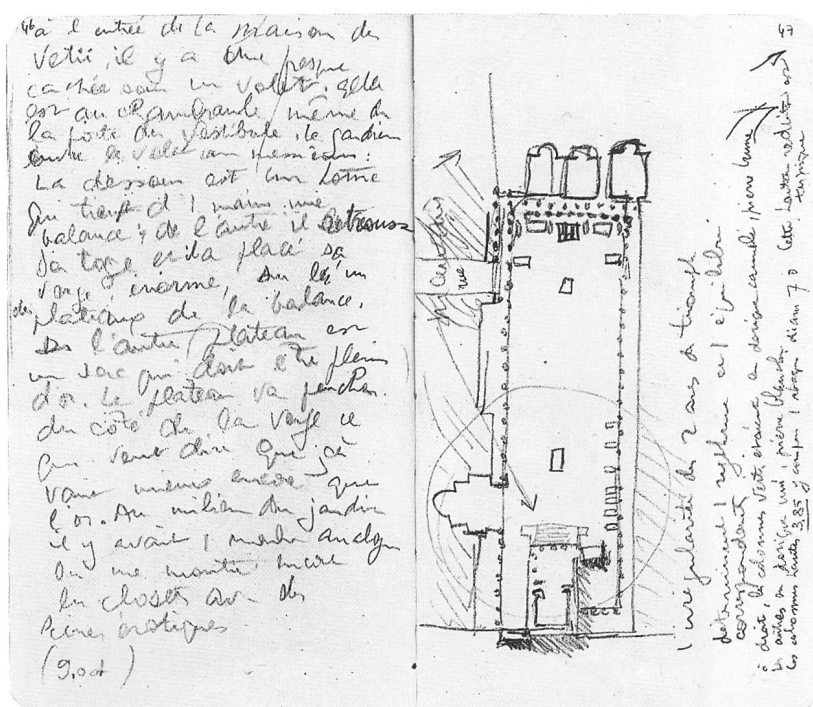 46
à l'entrée de la maison des
Vetii, il y a une presque
cachée sous un volet. Cela
est au chambranle même de
la porte du vestibule. Le gardien
ouvre le volet
La dessous est un homme
qui tient d'1 main une
balance; de l'autre il retrousse
sa toge et il a placé sa
verge, énorme, sur l'un
des plateaux de la balance.
l'autre plateau est
un sac qui doit être plein
d'or. Le plateau va pencher
du côté de la verge ce
qui veut dire que ça
vaut mieux encore que
l'or. Au milieu du jardin
il y avait 1 analogue
On me montre encore
les closets avec des
scènes érotiques
(9 oct)
47
rue
l'irrégularité des 2 arcs de triomphe
déterminent 1 rythme et 1 équilibre
correspondent
à droite, les colonnes verte en dorique cannelé, pierre brune
les autres en dorique uni, pierre blanche
les colonnes hautes 3,85 y compris 1 abaque diam 70 Cette hauteur réduite est
typique